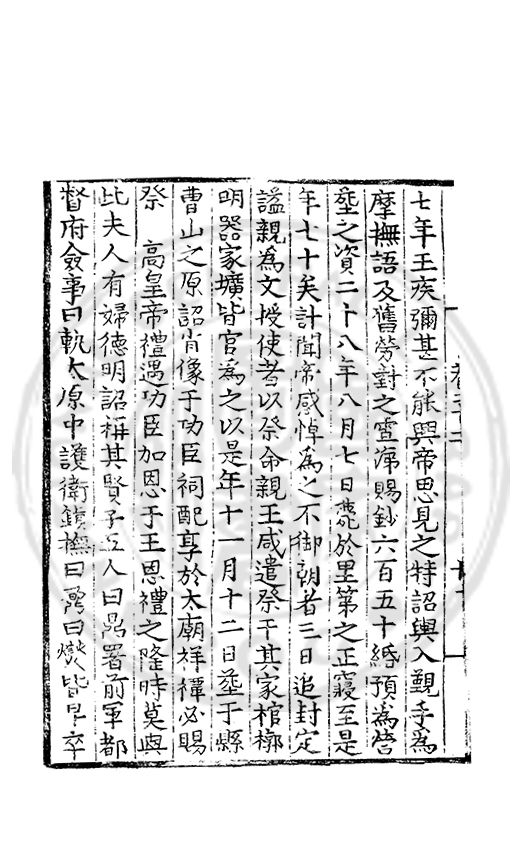 七年王疾彌甚不能興帝思見之特詔輿入覲手為
摩撫語及舊勞對之雪涕賜鈔六百五十緡預為營
塟之資二十八年八月七日薨於里第之正寢至是
年七十矣訃聞帝感悼為之不御朝者三日追封定
謚親為文授使者以祭命親王咸遣祭于其家棺槨
明器家壙皆官為之以是年十一月十二日塟于縣
曹山之原詔肖像于功臣祠配享於太廟祥禫必賜
祭 高皇帝禮遇功臣加恩于王恩禮之隆時莫與
比夫人有婦德明詔稱其賢子五人曰鼎署前軍都
督府僉事曰軏太原中護衛鎮撫曰鼐曰燮皆早卒